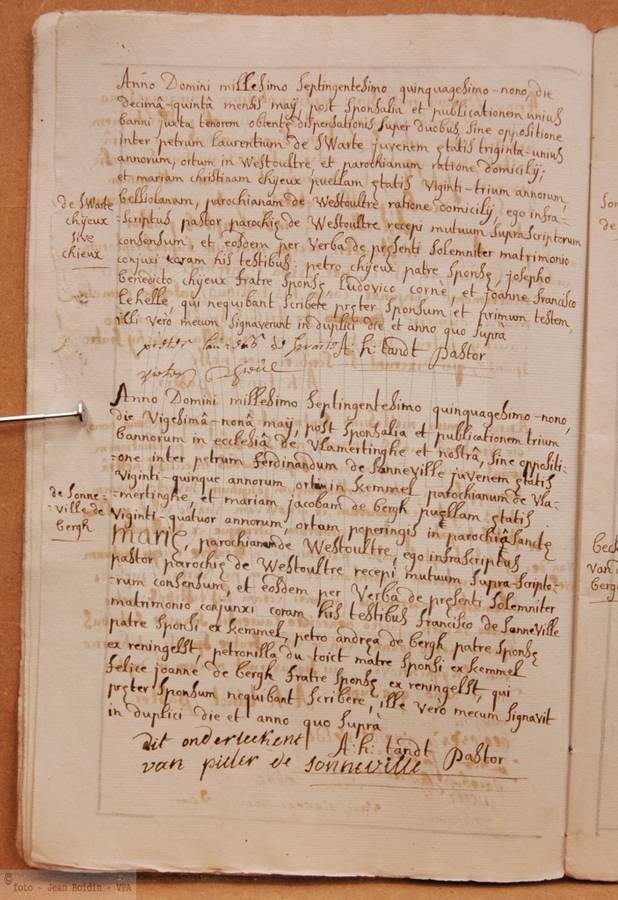 Anno Domini millesimo septingentesimo quinquagesimo-nono, die
decimâ-quintâ mensis maÿ, post sponsalia et publicationem unius
banni juxta tenorem obtentę dispensationis super duobus, sine oppositione
inter petrum Laurentium de SWarte juvenem ętatis triginta-unius
annorum, oitum in Westoultre, et parochianum ratione domicilÿ;
et mariam christinam chÿeux, puellam ętatis viginti-trium annorum,
belliolanam, parochianam de Westoultre ratione domicilÿ, ego infra=
=scriptus pastor parochię de Westoultre recepi mutuum suprascriptorum
consensum, et eosdem per verba de pręsenti solemniter matrimonio
conjuxi coram his testibus: petro chÿeux patre sponsę, josepho
benedicto chÿeux fratre sponsę, Ludovico cornè, et joanne francisco
Lehelle, qui nequibant scribere pręter sponsum et primum testem,
illi verò mecum signaverunt in duplici die et anno quo suprà
de SWarte
chÿeux
sive
chieux
A: h: tandt Pastor
Anno Domini millesimo septingentesimo quinquagesimo-nono,
die vigesimâ-nonâ maÿ, post sponsalia et publicationem trium
bannorum in ecclesiâ de Vlamertinghe et nostrâ, sine oppositi=
=one inter petrum ferdinandum de Sonneville juvenem ętatis
viginti-quinque annorum ortum in kemmel parochianum de Vla=
=mertinghe, et mariam jacobam de bergh puellam ętatis
viginti-quatuor annorum, ortam poperingis in parochiâ sanctę
marię, parochianam de Westoultre, ego infrascriptus
pastor parochię de Westoultre recepi mutuum supra-scripto=
=rum consensum, et eosdem per verba de pręsenti solemniter
matrimonio conjunxi coram his testibus francisco de Sonneville
patre sponsi ex kemmel, petro andręa de bergh patre sponsę
ex reningelst, petronilla du toict matre sponsi ex kemmel
felice joanne de bergh fratre sponsę ex reningelst, qui
pręter sponsum nequibant scribere, ille vero mecum signavit
in duplici die et anno quo suprà
de Sonne=
=ville de
bergh
dit onderteekent
A: h: tandt Pastor
van pieter de sonneville
© foto - Jean Roidin - VPA